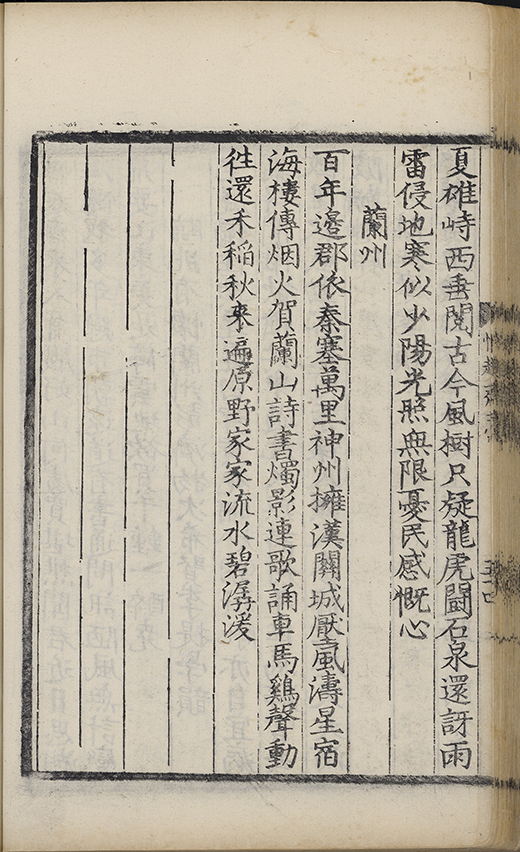 夏碓峙西垂閱古今風樹只疑龍虎鬪石泉還訝雨
雷侵地寒似少陽光照無限憂民感慨心
蘭州
百年邊郡依秦塞萬里神州擁漢關城壓風濤星宿
海樓傳烟火賀蘭山詩書燭影連歌誦車馬鷄聲動
徃還禾稲秋來遍原野家家流水碧潺湲